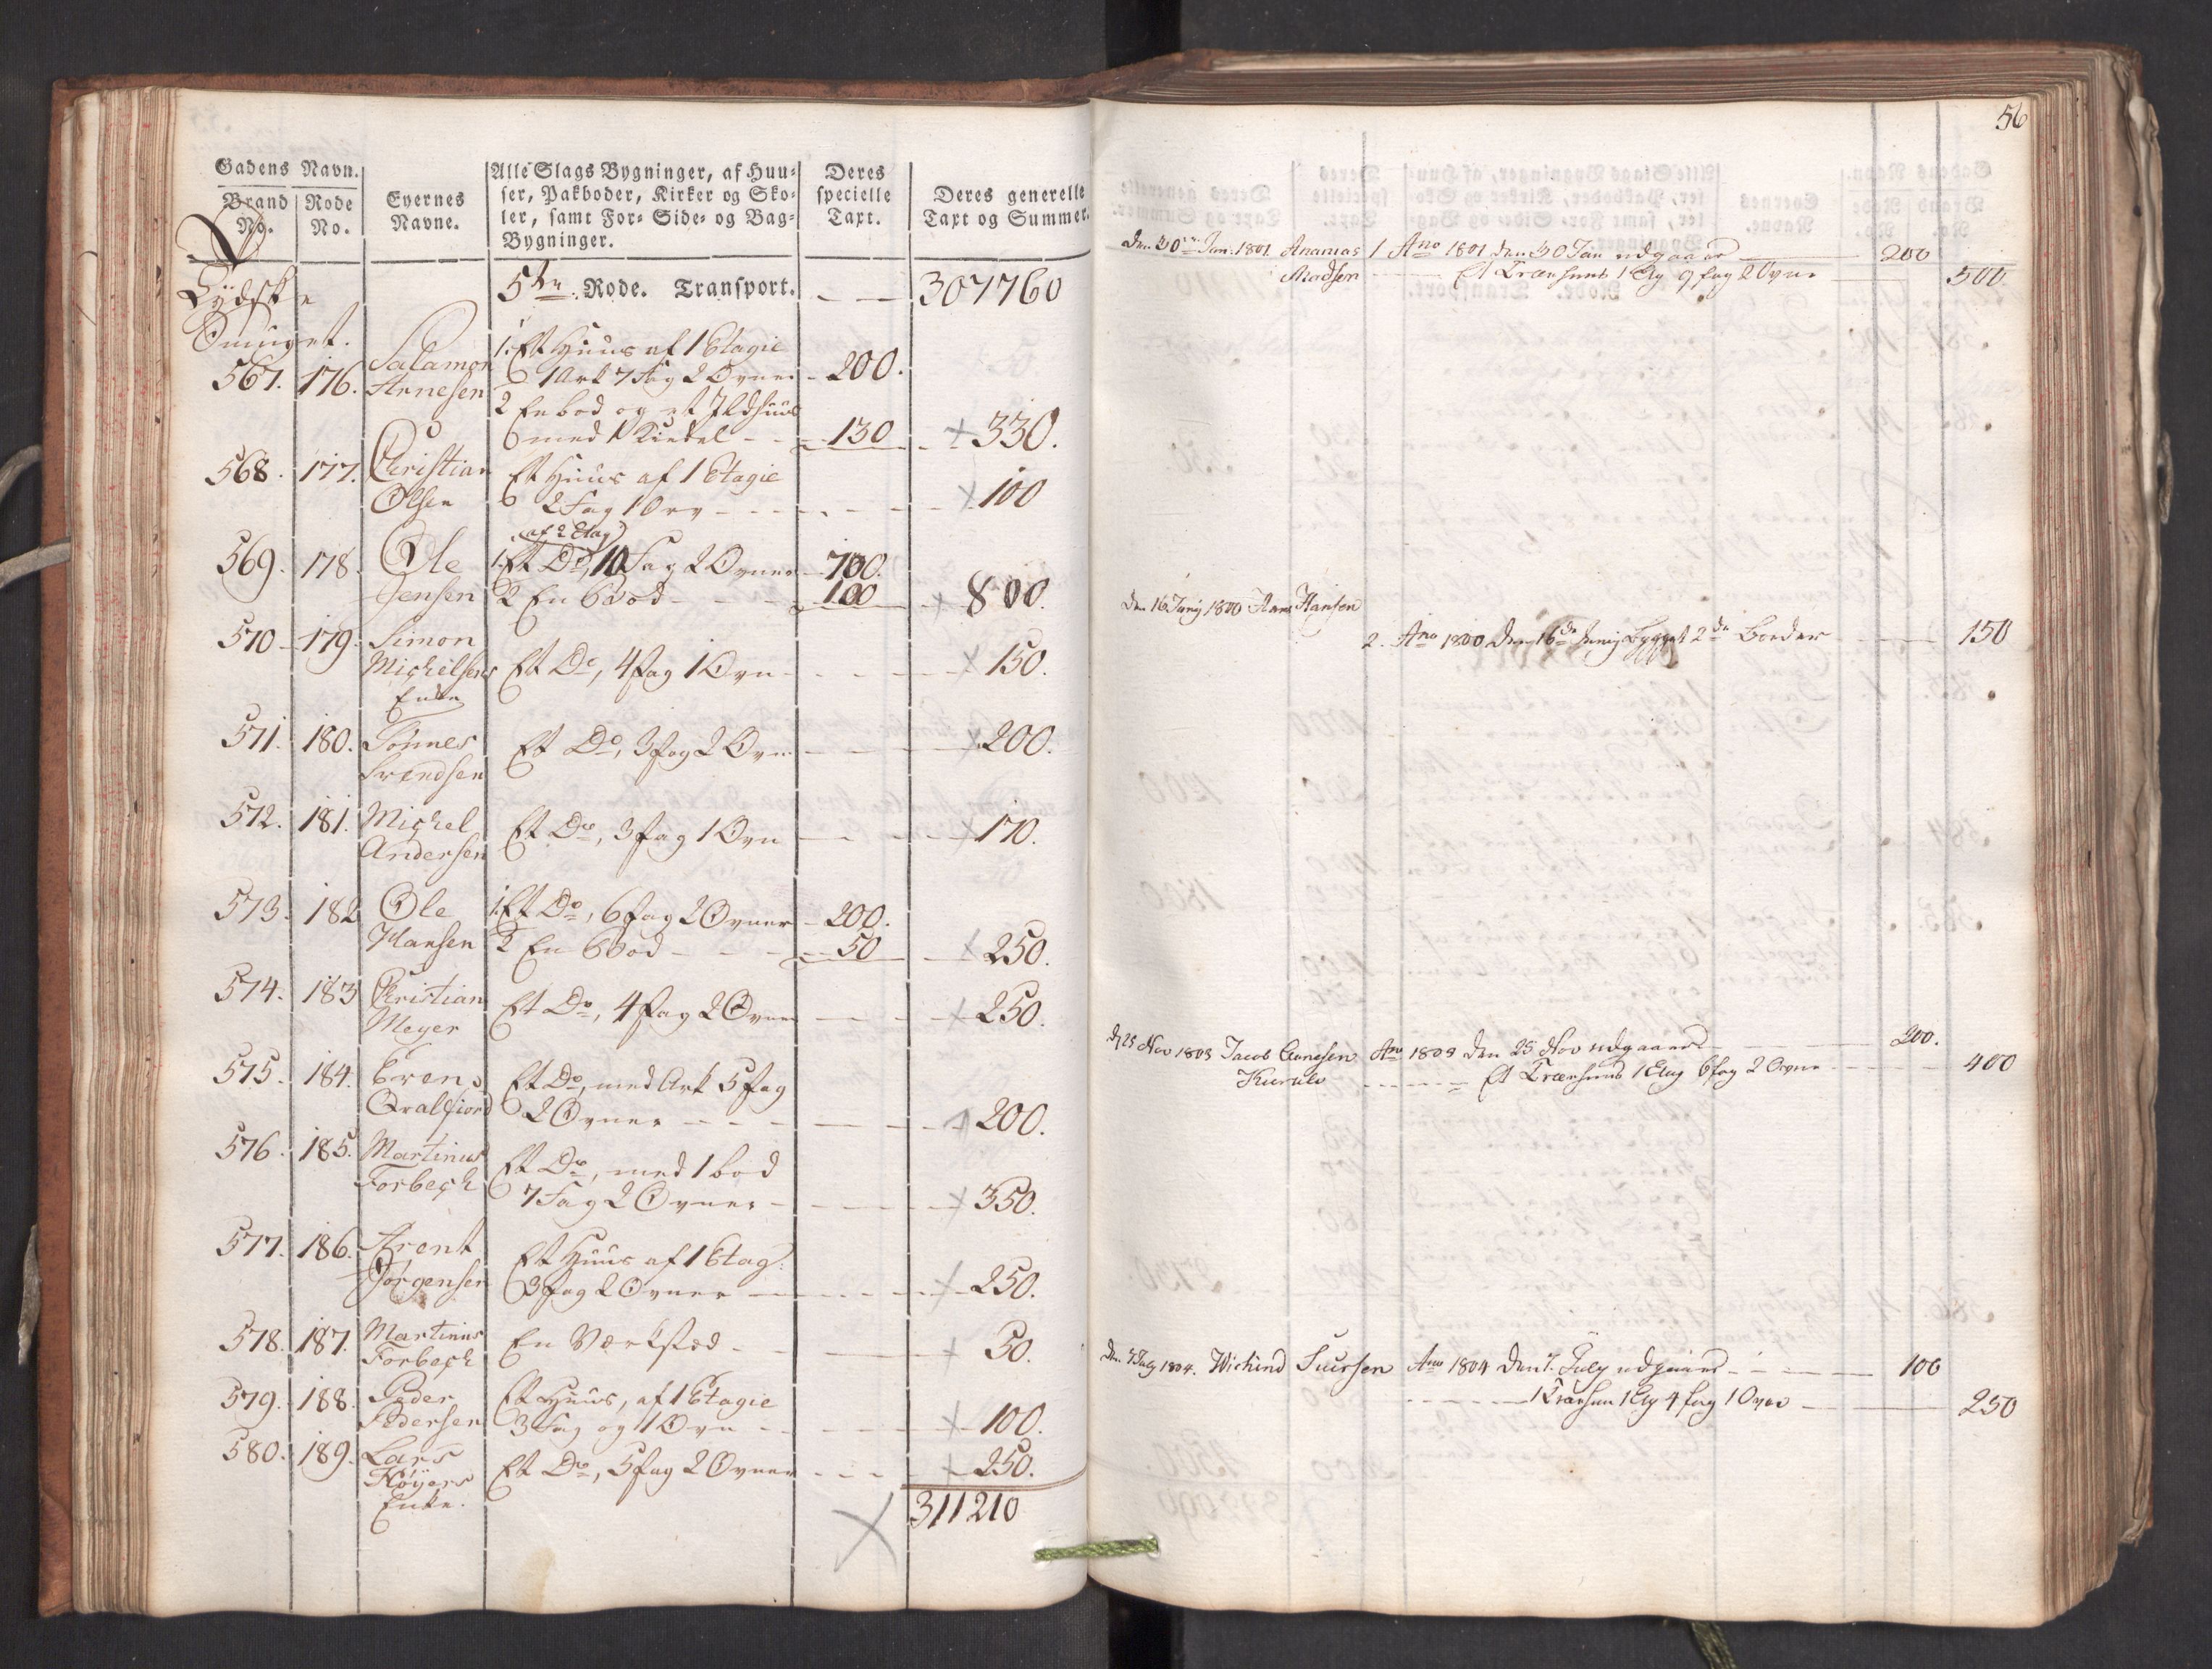 Gadens Navn.
Brand No. Rode No. Eyernes Navne. Alle Slags Bygninger, af Huu-
ser, Pakboder, Kirker og Sko-
ler, samt For- Side- og Bag-
Bygninger. Deres specielle Taxt. Deres generelle Taxt og Summer.
Tydske 5te Rode. Transport. 307760
Smuget.
567. 176. Salamon Arnesen 1. Et Huus af 1 Etagie
1 Ark 7 Fag 2 Ovner 200.
2 En bod og et Ildhuus
med 1 Kiedel 130 330.
568. 177. Christian Olsen Et Huus af 1 Etagie
2 Fag 1 Ovn 100
af 2 Etag
569. 178. Ole Jensen 1. Et Do, 10 Fag 2 Ovner 700.
2 En Bod 100 800.
570 179. Simon Michelsens Enke Et Do, 4 fag 1 Ovn 150.
571. 180. Tønnes Svendsen Et Do, 3 fag 2 Ovn 200.
572. 181. Michel Andersen Et Do, 3 fag 1 Ovn 170.
573. 182 Ole Hansen 1. Et Do, 6 fag 2 Ovner 200.
2 En Bod 50 250.
574. 183 Christian Meyer Et Do, 4 fag 2 Ovner 250.
575. 184. Eren Qvalfiord Et Do, med Ark 5 fag
2 Ovner 200.
576. 185. Martinus Forbech Et Do, med 1 bod
7 Fag 2 Ovner 350.
577. 186. Arent Jørgensen Et Huus af 1 Etag:
3 fag 2 Ovner 250.
578. 187. Martinus Forbech En Værksted 50.
579. 188. Peder Pedersen Et Huus, af 1 Etagie
3 Fag og 1 Ovn 100.
580. 189. Lars Høyers Enke. Et Do, 5 fag 2 Ovner 250.
311210
56
den 30 Jan: 1801. Ananias 1 Ano 1801 den 30 Jan udgaaer 200
Madsen Et Træehuus 1 Etg 9 fag 2 Ovne 500.
den 16 Junij 1800 Hans Hansen
2. Ano 1800 den 16de Junij bygget 2de Boeder 150
d 25 Nov 1803 Jacob Ano 1803 den 25 Nov udgaaer 200.
Et Træehuus 1 Etag 6 fag 2 Ovne 400
den 7 July 1804. Wichind Siursen Ano 1804 den 7. July udgaaer 100
1 Træehuus 1 Etg 4 fag 1 Ovn 250